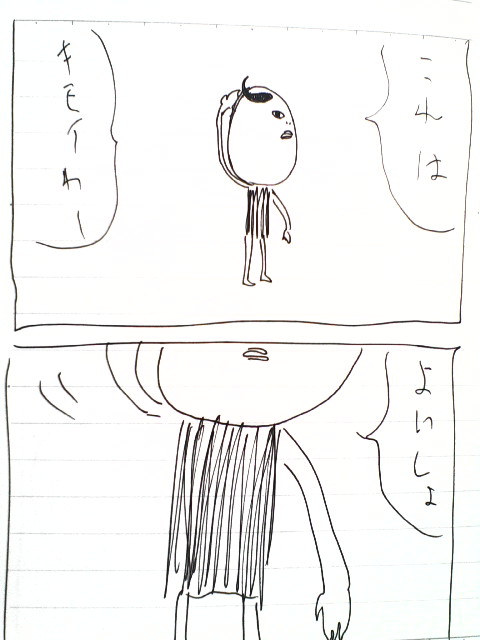 これは
キモイわー
よいしょ